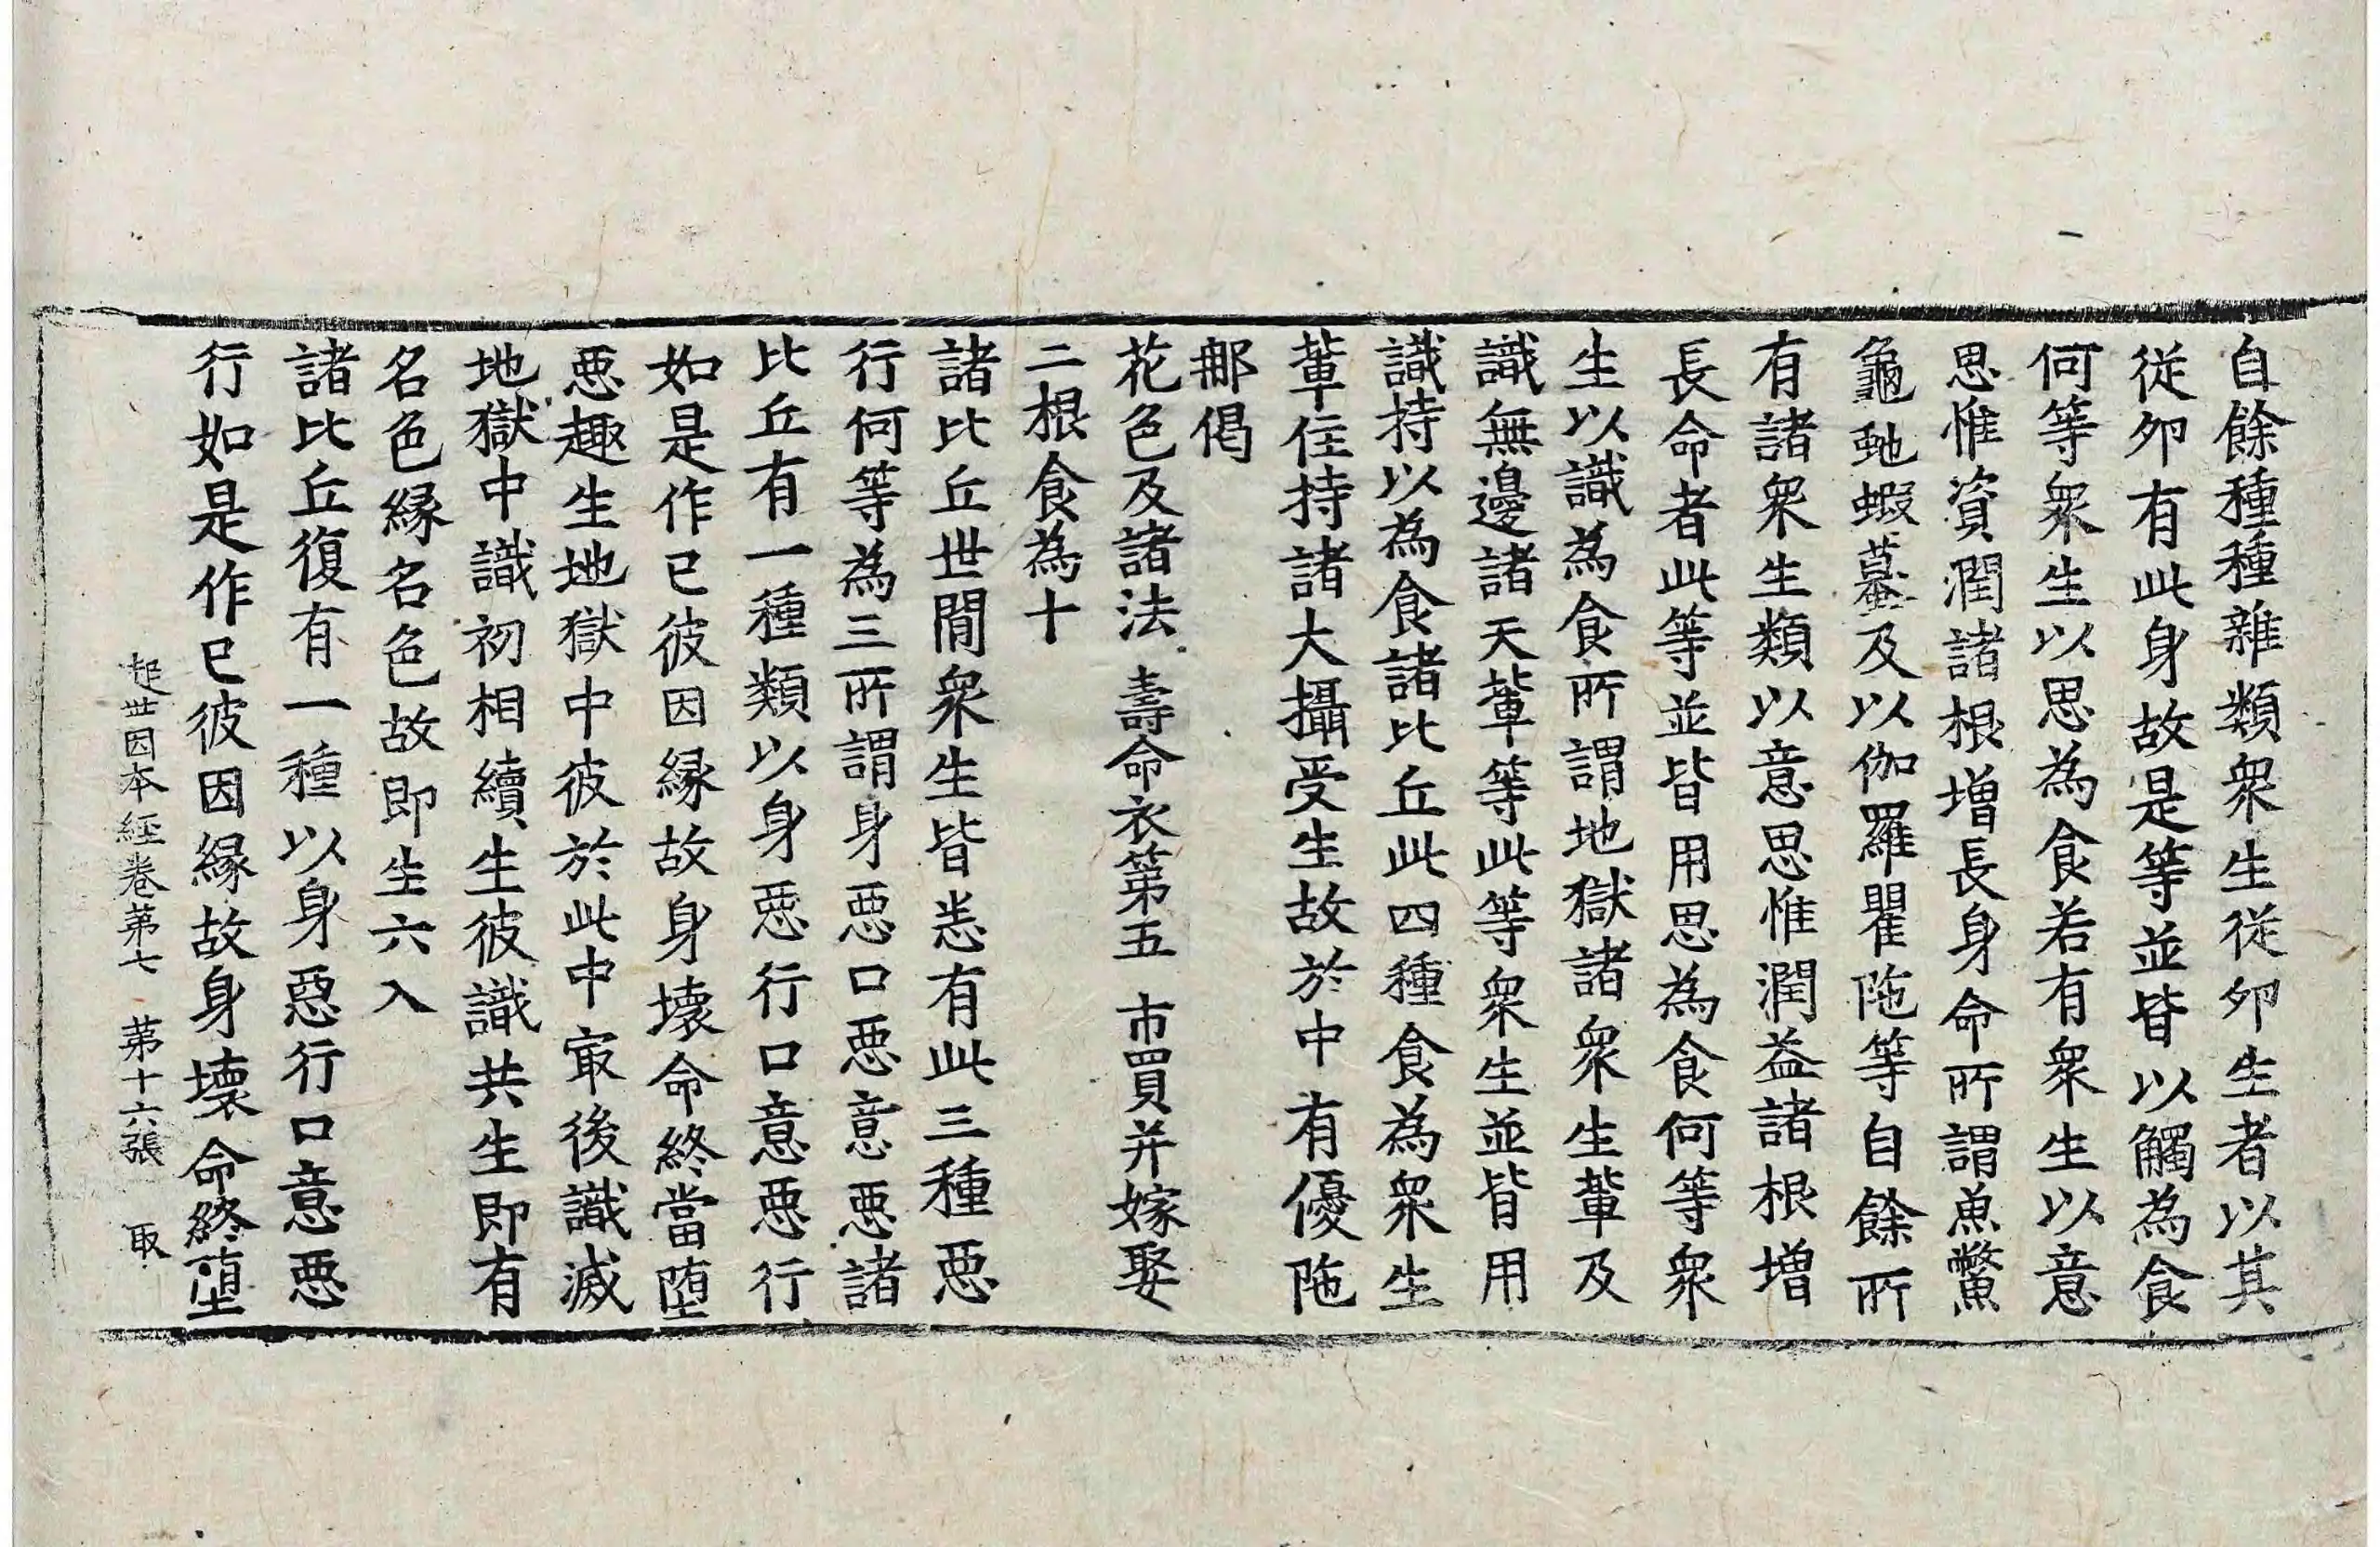 自餘種種雜類衆生從卵生者以其
從卵有此身故是等並皆以觸為食
何等衆生以思為食若有衆生以意
思惟資潤諸根增長身命所謂魚鱉
龜虵蝦蟇及以伽羅瞿陁等自餘所
有諸衆生類以意思惟潤益諸根增
長命者此等並皆用思為食何等衆
生以識為食所謂地獄諸衆生軰及
識無邊諸天軰等此等衆生並皆用
識持以為食諸比丘此四種食為衆生
軰住持諸大攝受生故於中有優陁
那偈
花色及諸法 壽命衣第五 市買并嫁娶
二根食為十
諸比丘世間衆生皆悉有此三種惡
行何等為三所謂身惡口惡意惡諸
比丘有一種類以身惡行口意惡行
如是作已彼因縁故身壞命終當墮
惡趣生地獄中彼於此中㝡後識滅
地獄中識初相續生彼識共生即有
名色縁名色故即生六入
諸比丘復有一種以身惡行口意惡
行如是作已彼因縁故身壞命終墮
起世因本經卷第七 第十六張 取